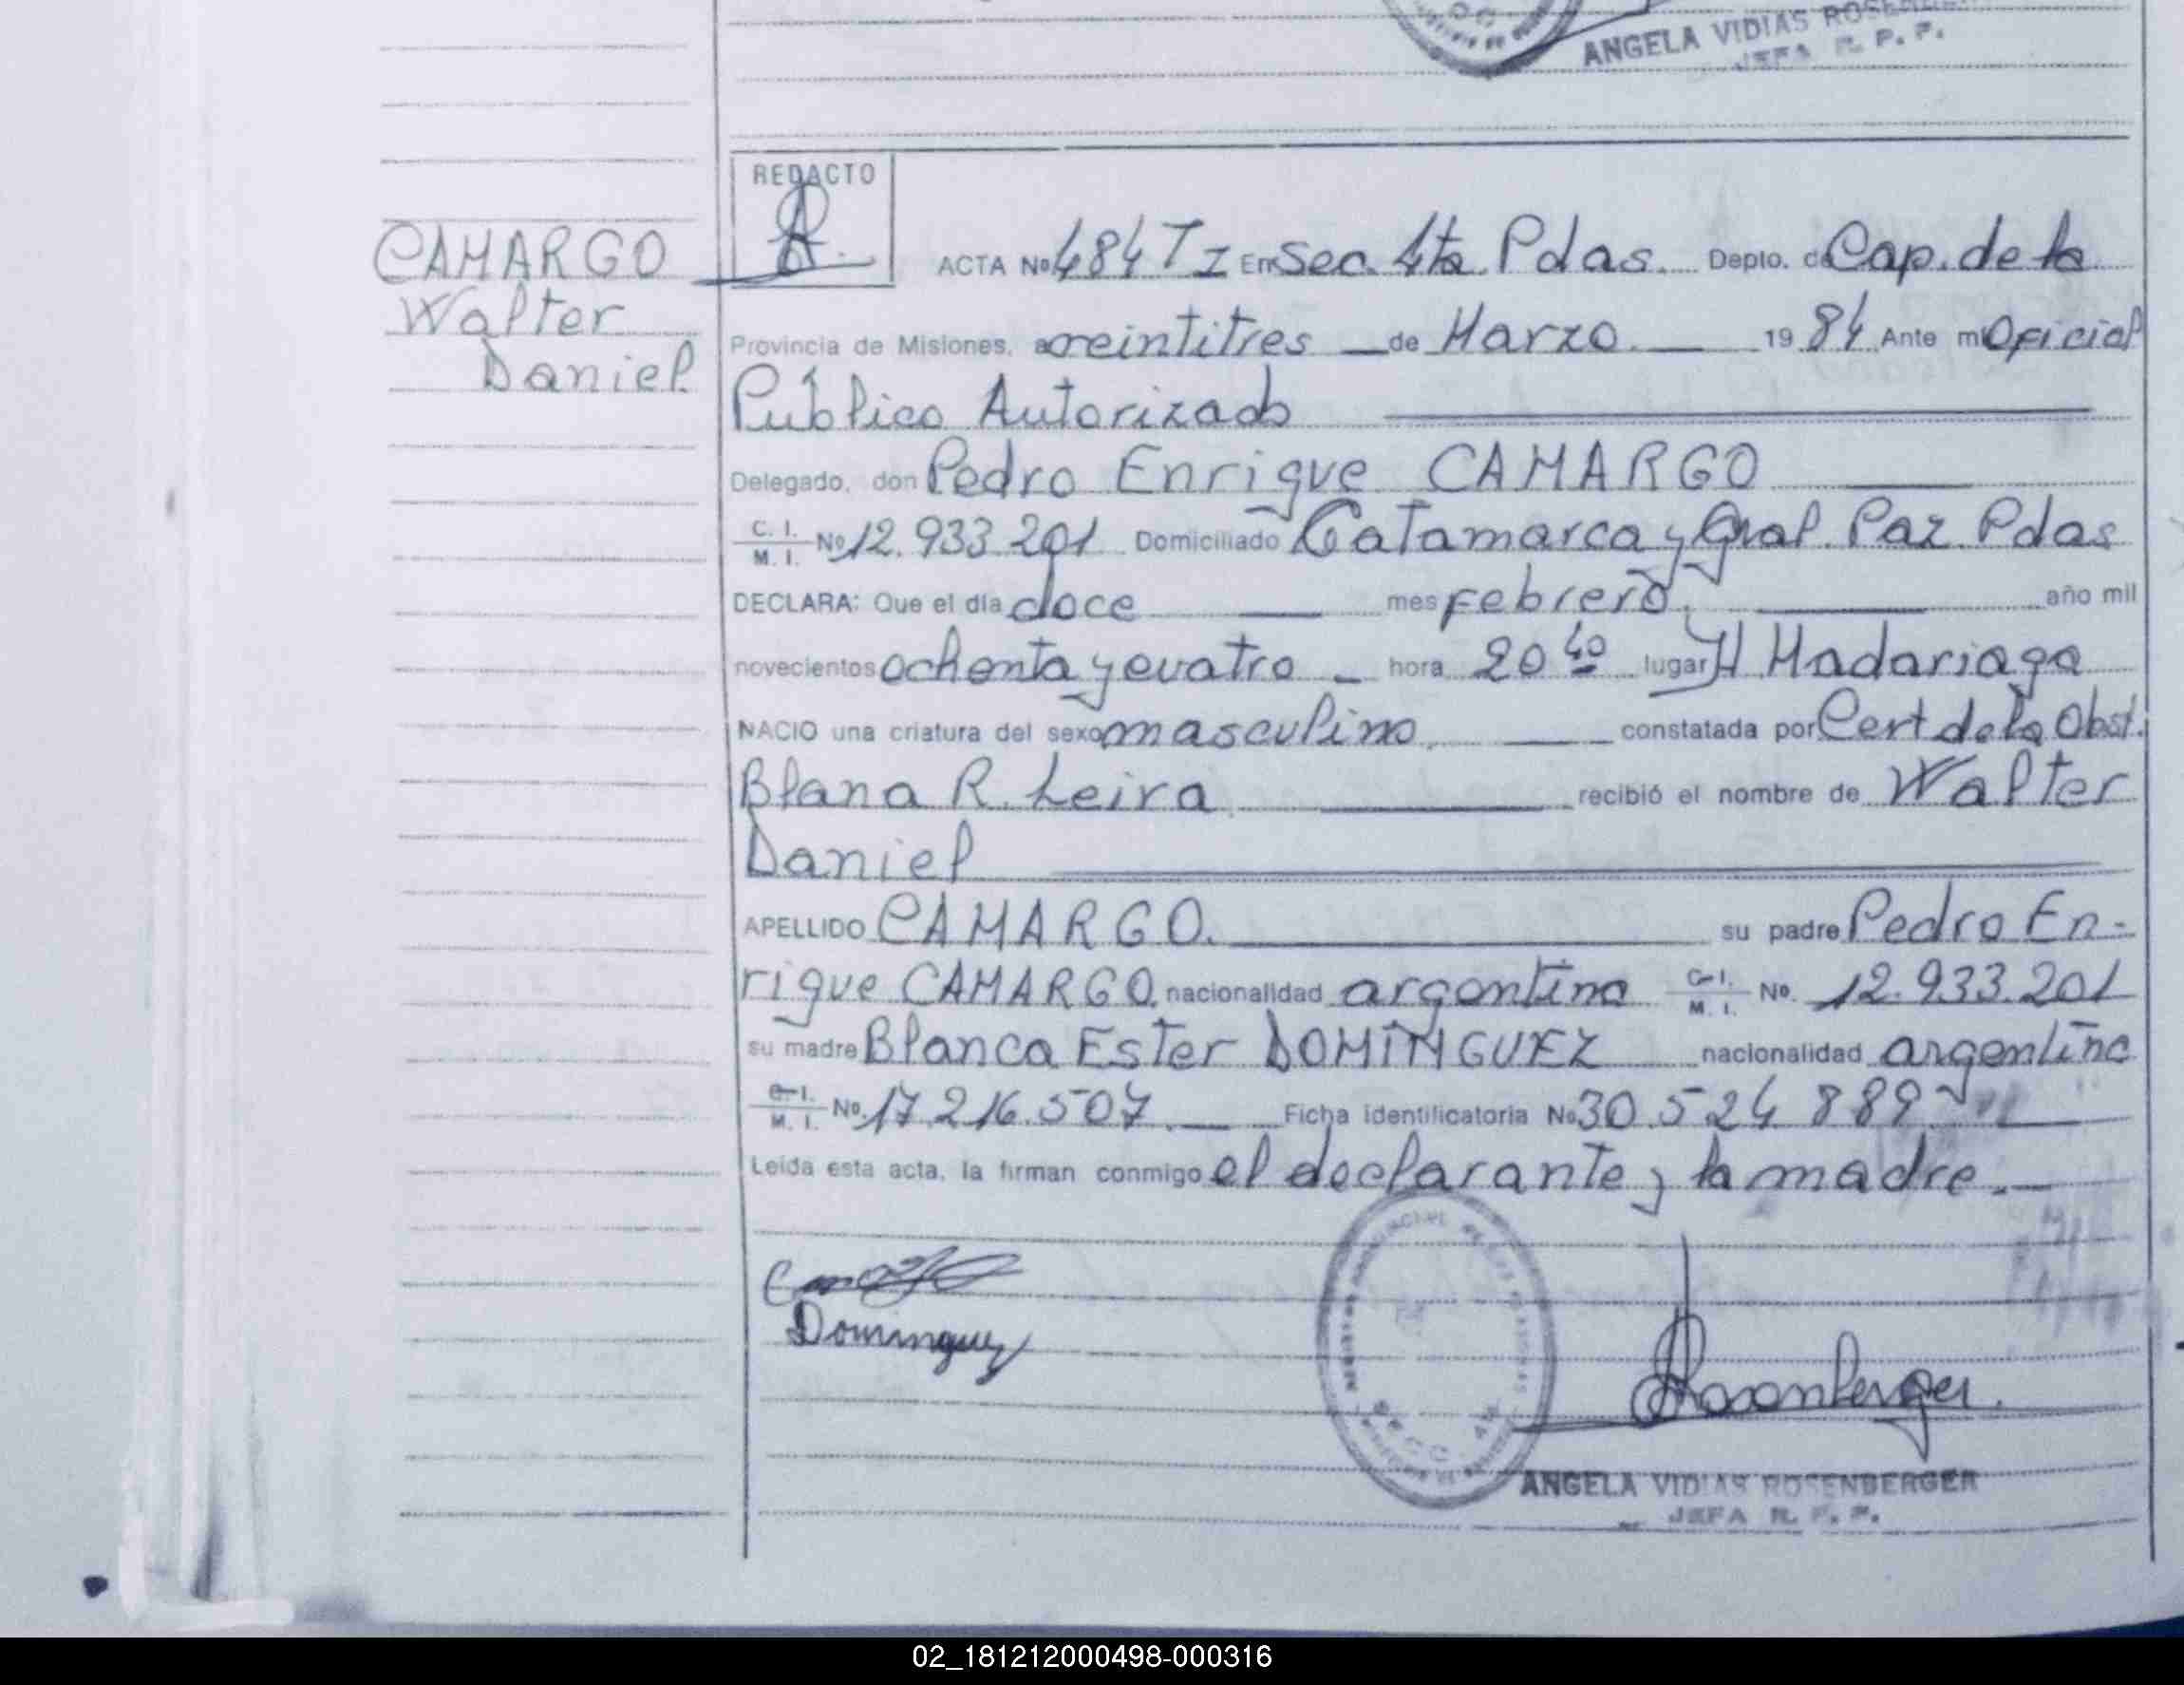 ANGELA VIDIAS
JEFA R. P. P.
REDACTO
CAMARGO
Walter
Daniel
ACTA Nº 484 T I En Sec. 4ta. Pdas. Depto. de Cap. de la
Provincia de Misiones, a veintitres de Marzo. 19 84 Ante mi Oficial
Público Autorizado
Delegado, don Pedro Enrique CAMARGO
C. I.
M. I. Nº 12.933.201 Domiciliado Catamarca y Gral. Paz. Pdas
DECLARA: Que el día doce mes febrero. año mil
novecientos ochenta y cuatro hora 20 40 lugar H Madariaga
NACIO una criatura del sexo masculino. constatada por Cert de la Obst.
Blana R. Leiva recibió el nombre de Walter
Daniel
APELLIDO CAMARGO. su padre Pedro En-
rique CAMARGO. nacionalidad argentina C. I.
M. I. Nº. 12.933.201
su madre Blanca Ester DOMINGUEZ nacionalidad argentina
C. I.
M. I. Nº. 17.216.507. Ficha identificatoria Nº 30.524 889
Leída esta acta, la firman conmigo el declarante y la madre.
Dominguez
Rosenberger.
ANGELA VIDIAS ROSENBERGER
JEFA R. P. P.
02_181212000498-000316